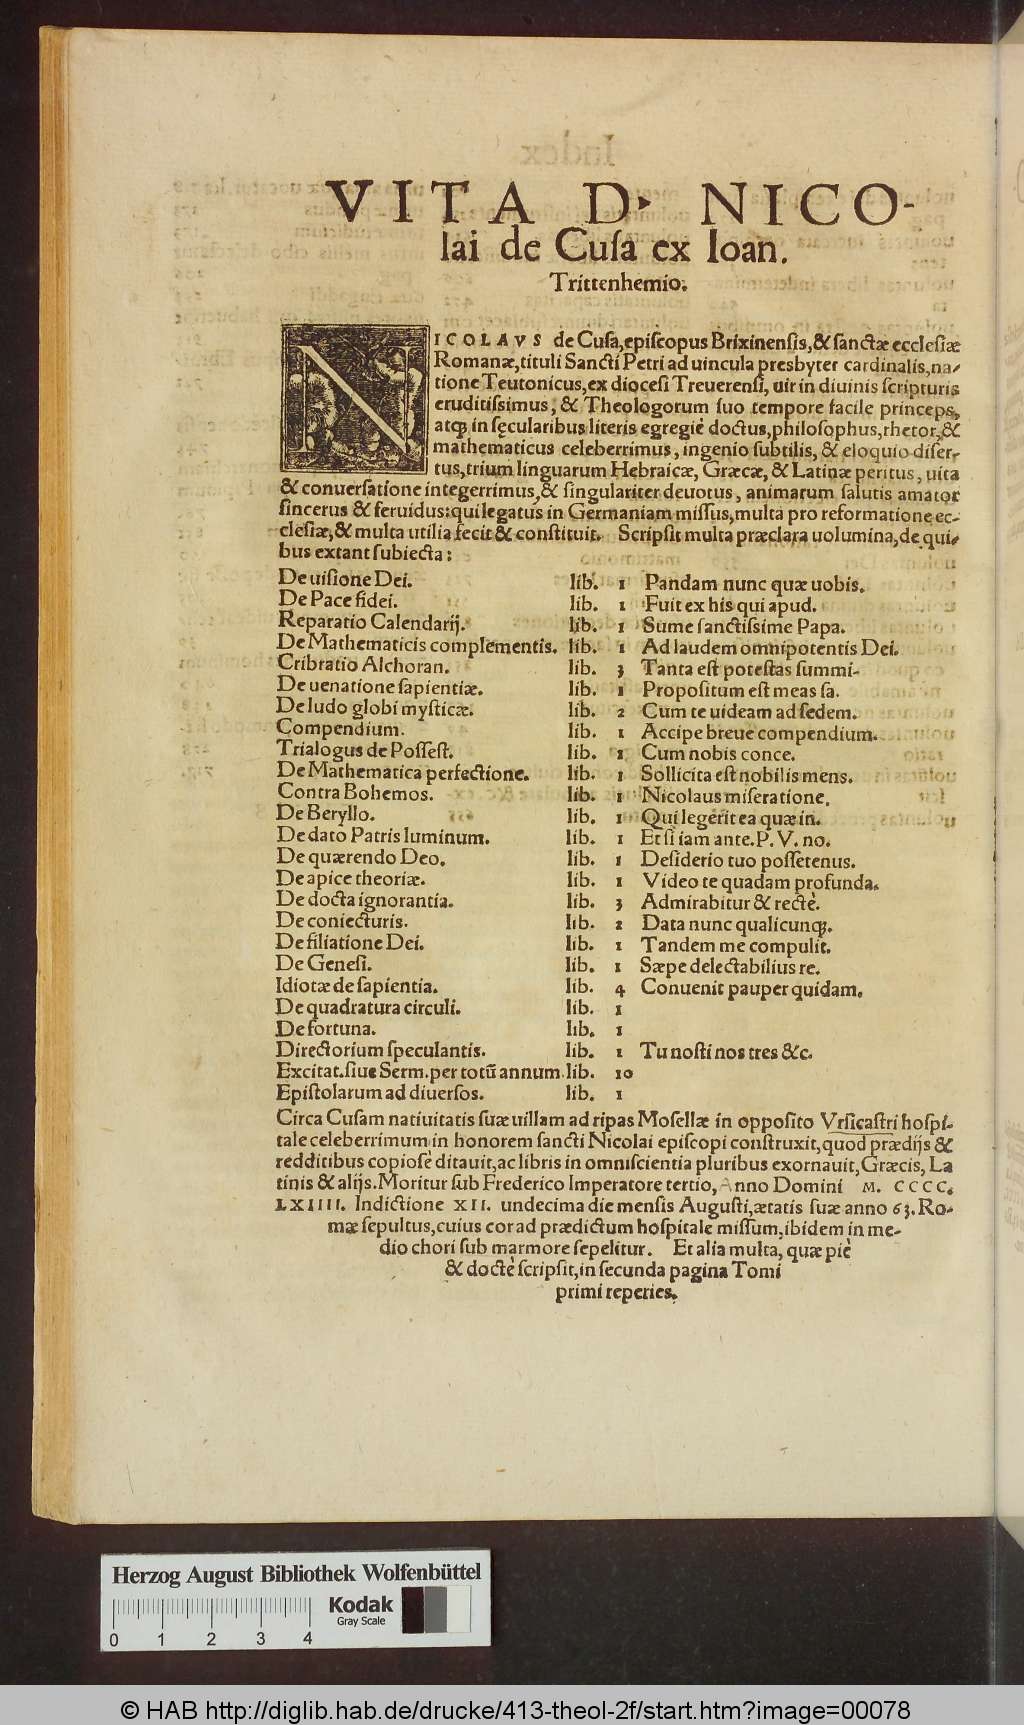 VITA D. NICO-
lai de Cuſa ex Ioan.
Trittenhemio.
NICOLAVS de Cuſa, epiſcopus Brixinenſis, & ſanctæ eccleſiæ
Romanæ, tituli Sancti Petri ad uincula presbyter cardinalis, na-
tione Teutonicus, ex dioceſi Treuerenſi, uir in diuinis ſcripturis
eruditiſsimus, & Theologorum ſuo tempore facile princeps,
atq; in ſęcularibus literis egregiè doctus, philoſophus, rhetor, &
mathematicus celeberrimus, ingenio ſubtilis, & eloquio diſer-
tus, trium linguarum Hebraicæ, Græcæ, & Latinæ peritus, uita
& conuerſatione integerrimus, & ſingulariter deuotus, animarum ſalutis amator
ſincerus & feruidus: qui legatus in Germaniam miſſus, multa pro reformatione ec-
cleſiæ, & multa utilia fecit & conſtituit. Scripſit multa præclara uolumina, de qui-
bus extant ſubiecta:
De uiſione Dei. lib. 1 Pandam nunc quæ uobis.
De Pace fidei. lib. 1 Fuit ex his qui apud.
Reparatio Calendarij. lib. 1 Sume ſanctiſsime Papa.
De Mathematicis complementis. lib. 1 Ad laudem omnipotentis Dei.
Cribratio Alchoran. lib. 3 Tanta eſt poteſtas ſummi-
De uenatione ſapientiæ. lib. 1 Propoſitum eſt meas ſa.
De ludo globi myſticæ. lib. 2 Cum te uideam ad ſedem.
Compendium. lib. 1 Accipe breue compendium.
Trialogus de Poſſeſt. lib. 1 Cum nobis conce.
De Mathematica perfectione. lib. 1 Sollicita eſt nobilis mens.
Contra Bohemos. lib. 1 Nicolaus miſeratione.
De Beryllo. lib. 1 Qui legerit ea quæ in.
De dato Patris luminum. lib. 1 Et ſi iam ante. P. V. no.
De quærendo Deo. lib. 1 Deſiderio tuo poſſetenus.
De apice theoriæ. lib. 1 Video te quadam profunda.
De docta ignorantia. lib. 3 Admirabitur & rectè.
De coniecturis. lib. 2 Data nunc qualicunq;.
De filiatione Dei. lib. 1 Tandem me compulit.
De Geneſi. lib. 1 Sæpe delectabilius re.
Idiotæ de ſapientia. lib. 4 Conuenit pauper quidam.
De quadratura circuli. lib. 1
De fortuna. lib. 1
Directorium ſpeculantis. lib. 1 Tu noſti nos tres &c.
Excitat. ſiue Serm. per totũ annum. lib. 10
Epiſtolarum ad diuerſos. lib. 1
Circa Cuſam natiuitatis ſuæ uillam ad ripas Moſellæ in oppoſito Vrſicaſtri hoſpi-
tale celeberrimum in honorem ſancti Nicolai epiſcopi conſtruxit, quod prædijs &
redditibus copioſè ditauit, ac libris in omni ſcientia pluribus exornauit, Græcis, La
tinis & alijs. Moritur ſub Frederico Imperatore tertio, Anno Domini M. CCCC.
LXIIII. Indictione XII. undecima die menſis Auguſti, ætatis ſuæ anno 63. Ro-
mæ ſepultus, cuius cor ad prædictum hoſpitale miſſum, ibidem in me-
dio chori ſub marmore ſepelitur. Et alia multa, quæ piè
& doctè ſcripſit, in ſecunda pagina Tomi
primi reperies.
Herzog August Bibliothek Wolfenbüttel
Kodak
Gray Scale
0 1 2 3 4
© HAB http://diglib.hab.de/drucke/413-theol-2f/start.htm?image=00078